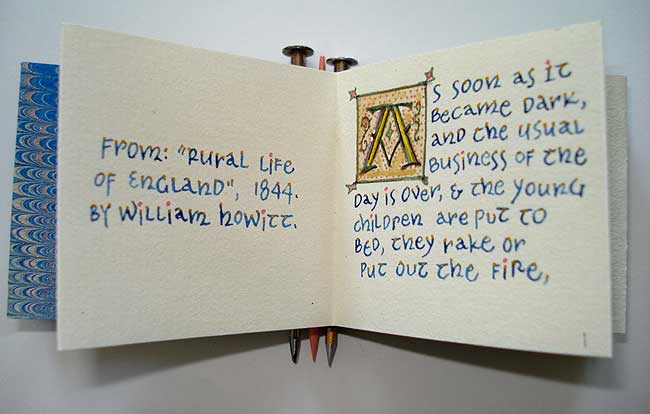 From: "Rural Life
of England", 1844.
By William Howitt.
As soon as it
became dark,
and the usual
business of the
day is over, & the young
children are put to
bed, they rake or
put out the fire,
1